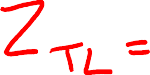 Z_TL =